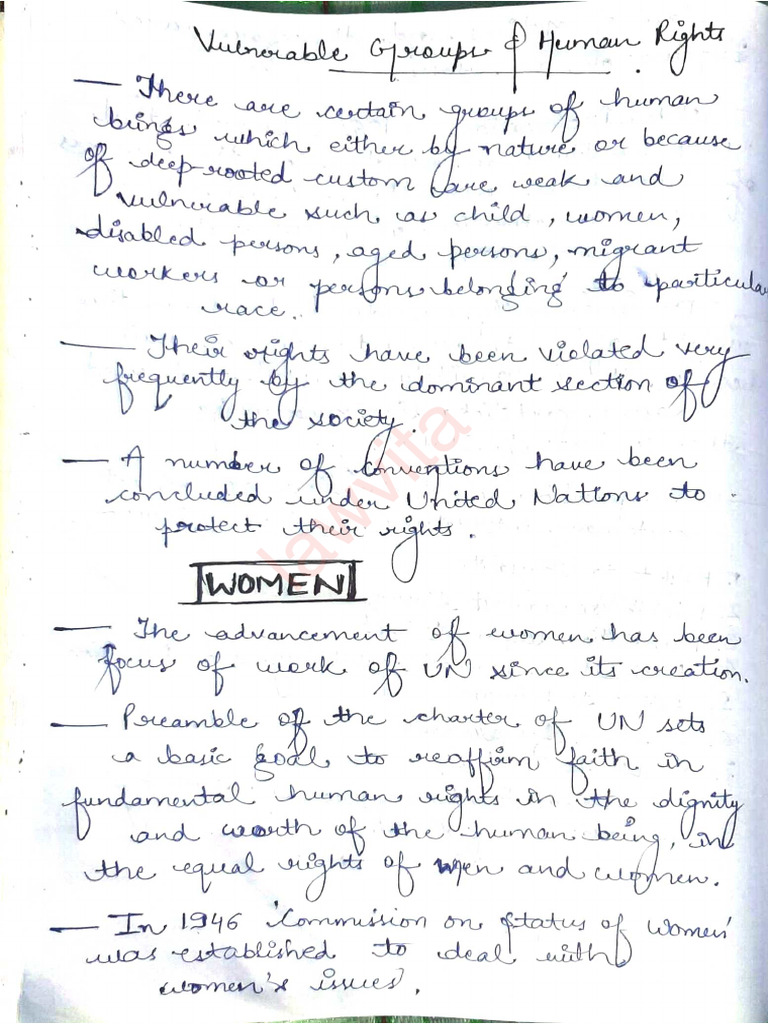 Vulnerable Groups & Human Rights
— There are certain groups of human
beings which either by nature or because
of deep-rooted custom are weak and
vulnerable such as child, women,
disabled persons, aged persons, migrant
workers or persons belonging to particular
race.
— Their rights have been violated very
frequently by the dominant section of
the society.
— A number of conventions have been
concluded under United Nations to
protect their rights.
lawvita
WOMEN
— The advancement of women has been
focus of work of UN since its creation.
— Preamble of the charter of UN sets
a basic goal to reaffirm faith in
fundamental human rights in the dignity
and worth of the human being, in
the equal rights of men and women.
— In 1946 'Commission on Status of Women'
was established to deal with
women's issues.